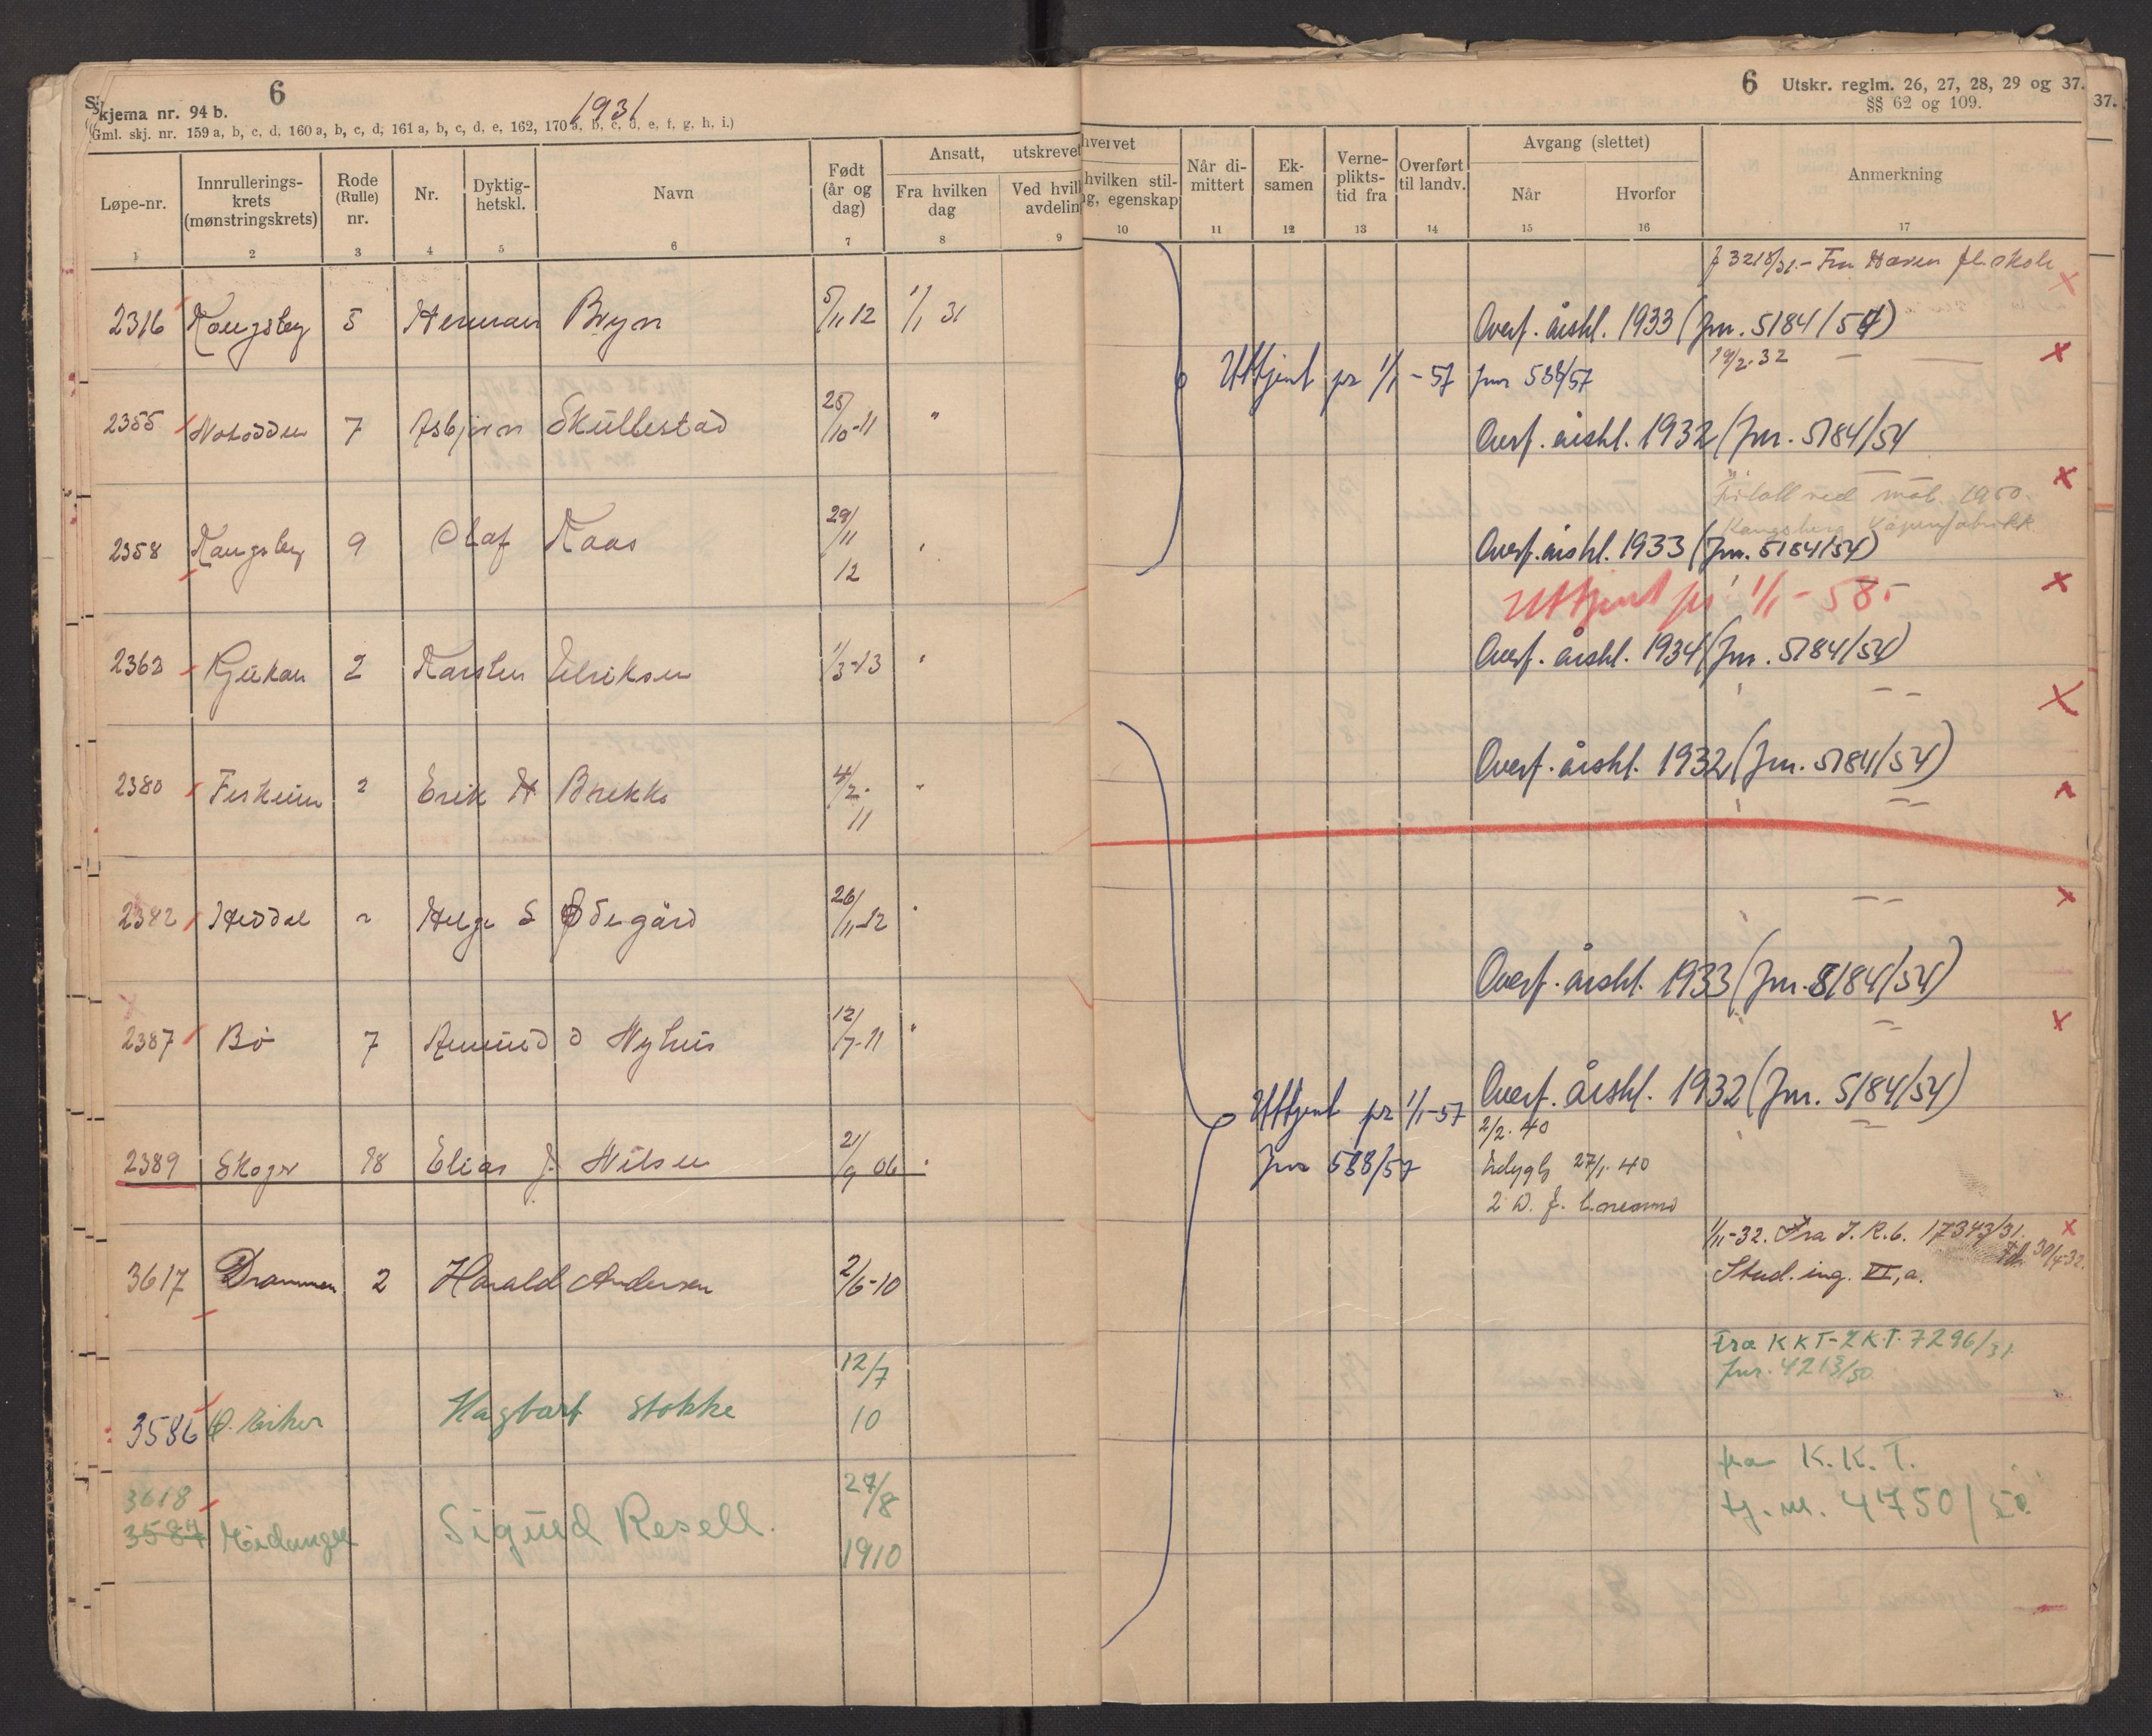 6
Skjema nr. 94 b.
1931
(Gml. skj. nr. 159 a, b, c, d, 160 a, b, c, d, 161 a, b, c, d, e, 162, 170 a, b, c, d, e, f, g, h, i.)
Løpe-nr. Innrullerings-krets (mønstringskrets) Rode (Rulle) nr. Nr. Dyktig-hetskl. Navn Født (år og dag) Ansatt, utskrevet
Fra hvilken dag Ved hvil avdelin
1 2 3 4 5 6 7 8 9
2316 Kongsberg 5 Herman Bryn 5/11 12 1/1 31
2355 Notodden 7 Asbjørn Skullestad 25/10-11 "
2358 Kongsberg 9 Olaf Kaas 29/11 12 "
2363 Rjukan 2 Karsten Ulriksen 1/3-13 "
2380 2 Erik H Brekke 4/2-11 "
2382 Heddal 2 Helge S Ødegård 26/11-12 "
2387 Bø 7 Amund O Nyhus 12/7-11 "
2389 Skoger 18 Elias J. Nilsen 21/9 06 "
3617 Drammen 2 Harald Andersen 2/6-10
3586 Ø. Eiker Hagbart Stokke 12/7 10
3618
3587 Sigurd Resell. 27/8 1910
6 Utskr. reglm. 26, 27, 28, 29 og 37.
§§ 62 og 109.
37.
hvervet
hvilken stil-
ng, egenskap
Når di-mittert Ek-samen Verne-plikts-tid fra Overført til landv. Avgang (slettet) Anmerkning
Når Hvorfor
10 11 12 13 14 15 16 17
J 3218/31.- Fra fl. skole
Overf. årskl. 1933 (Jnr. 5184/54)
19/2.32
Uttjent pr 1/1-57 jnr 588/57
Overf. årskl. 1932 (Jnr. 5184/54
Fritatt ved mob. 1950.
Kongsberg Våpenfabrikk
Overf. årskl. 1933 (Jnr. 5184/54)
Uttjent pr 1/1-58.
Overf. årskl. 1934 (Jnr. 5184/54)
Overf. årskl. 1932 (Jnr. 5184/54)
Overf. årskl. 1933 (Jnr. 5184/54)
Uttjent pr 1/1-57
Jnr 588/57
Overf. årskl. 1932 (Jnr. 5184/54)
2/2. 40
27/1. 40
1/11-32. Fra J. R. 6. 17343/31. 30/4-32.
Stud. ing. VI, a.
Fra KKT-ZKT. 7296/31
Jnr. 4213/50
fra K. K. T.
4750/50